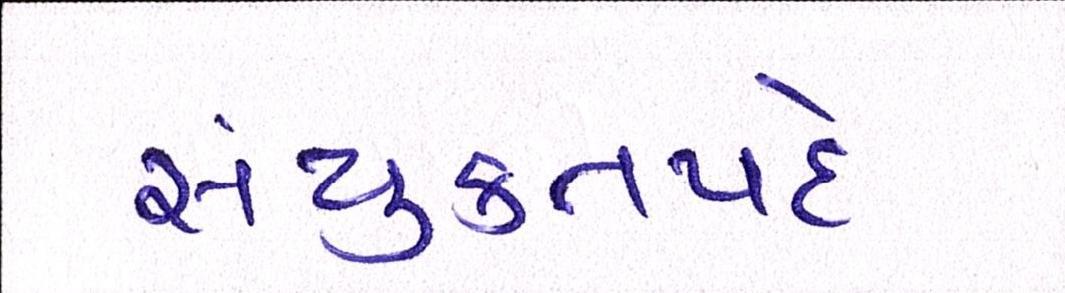 સંયુકતપદે